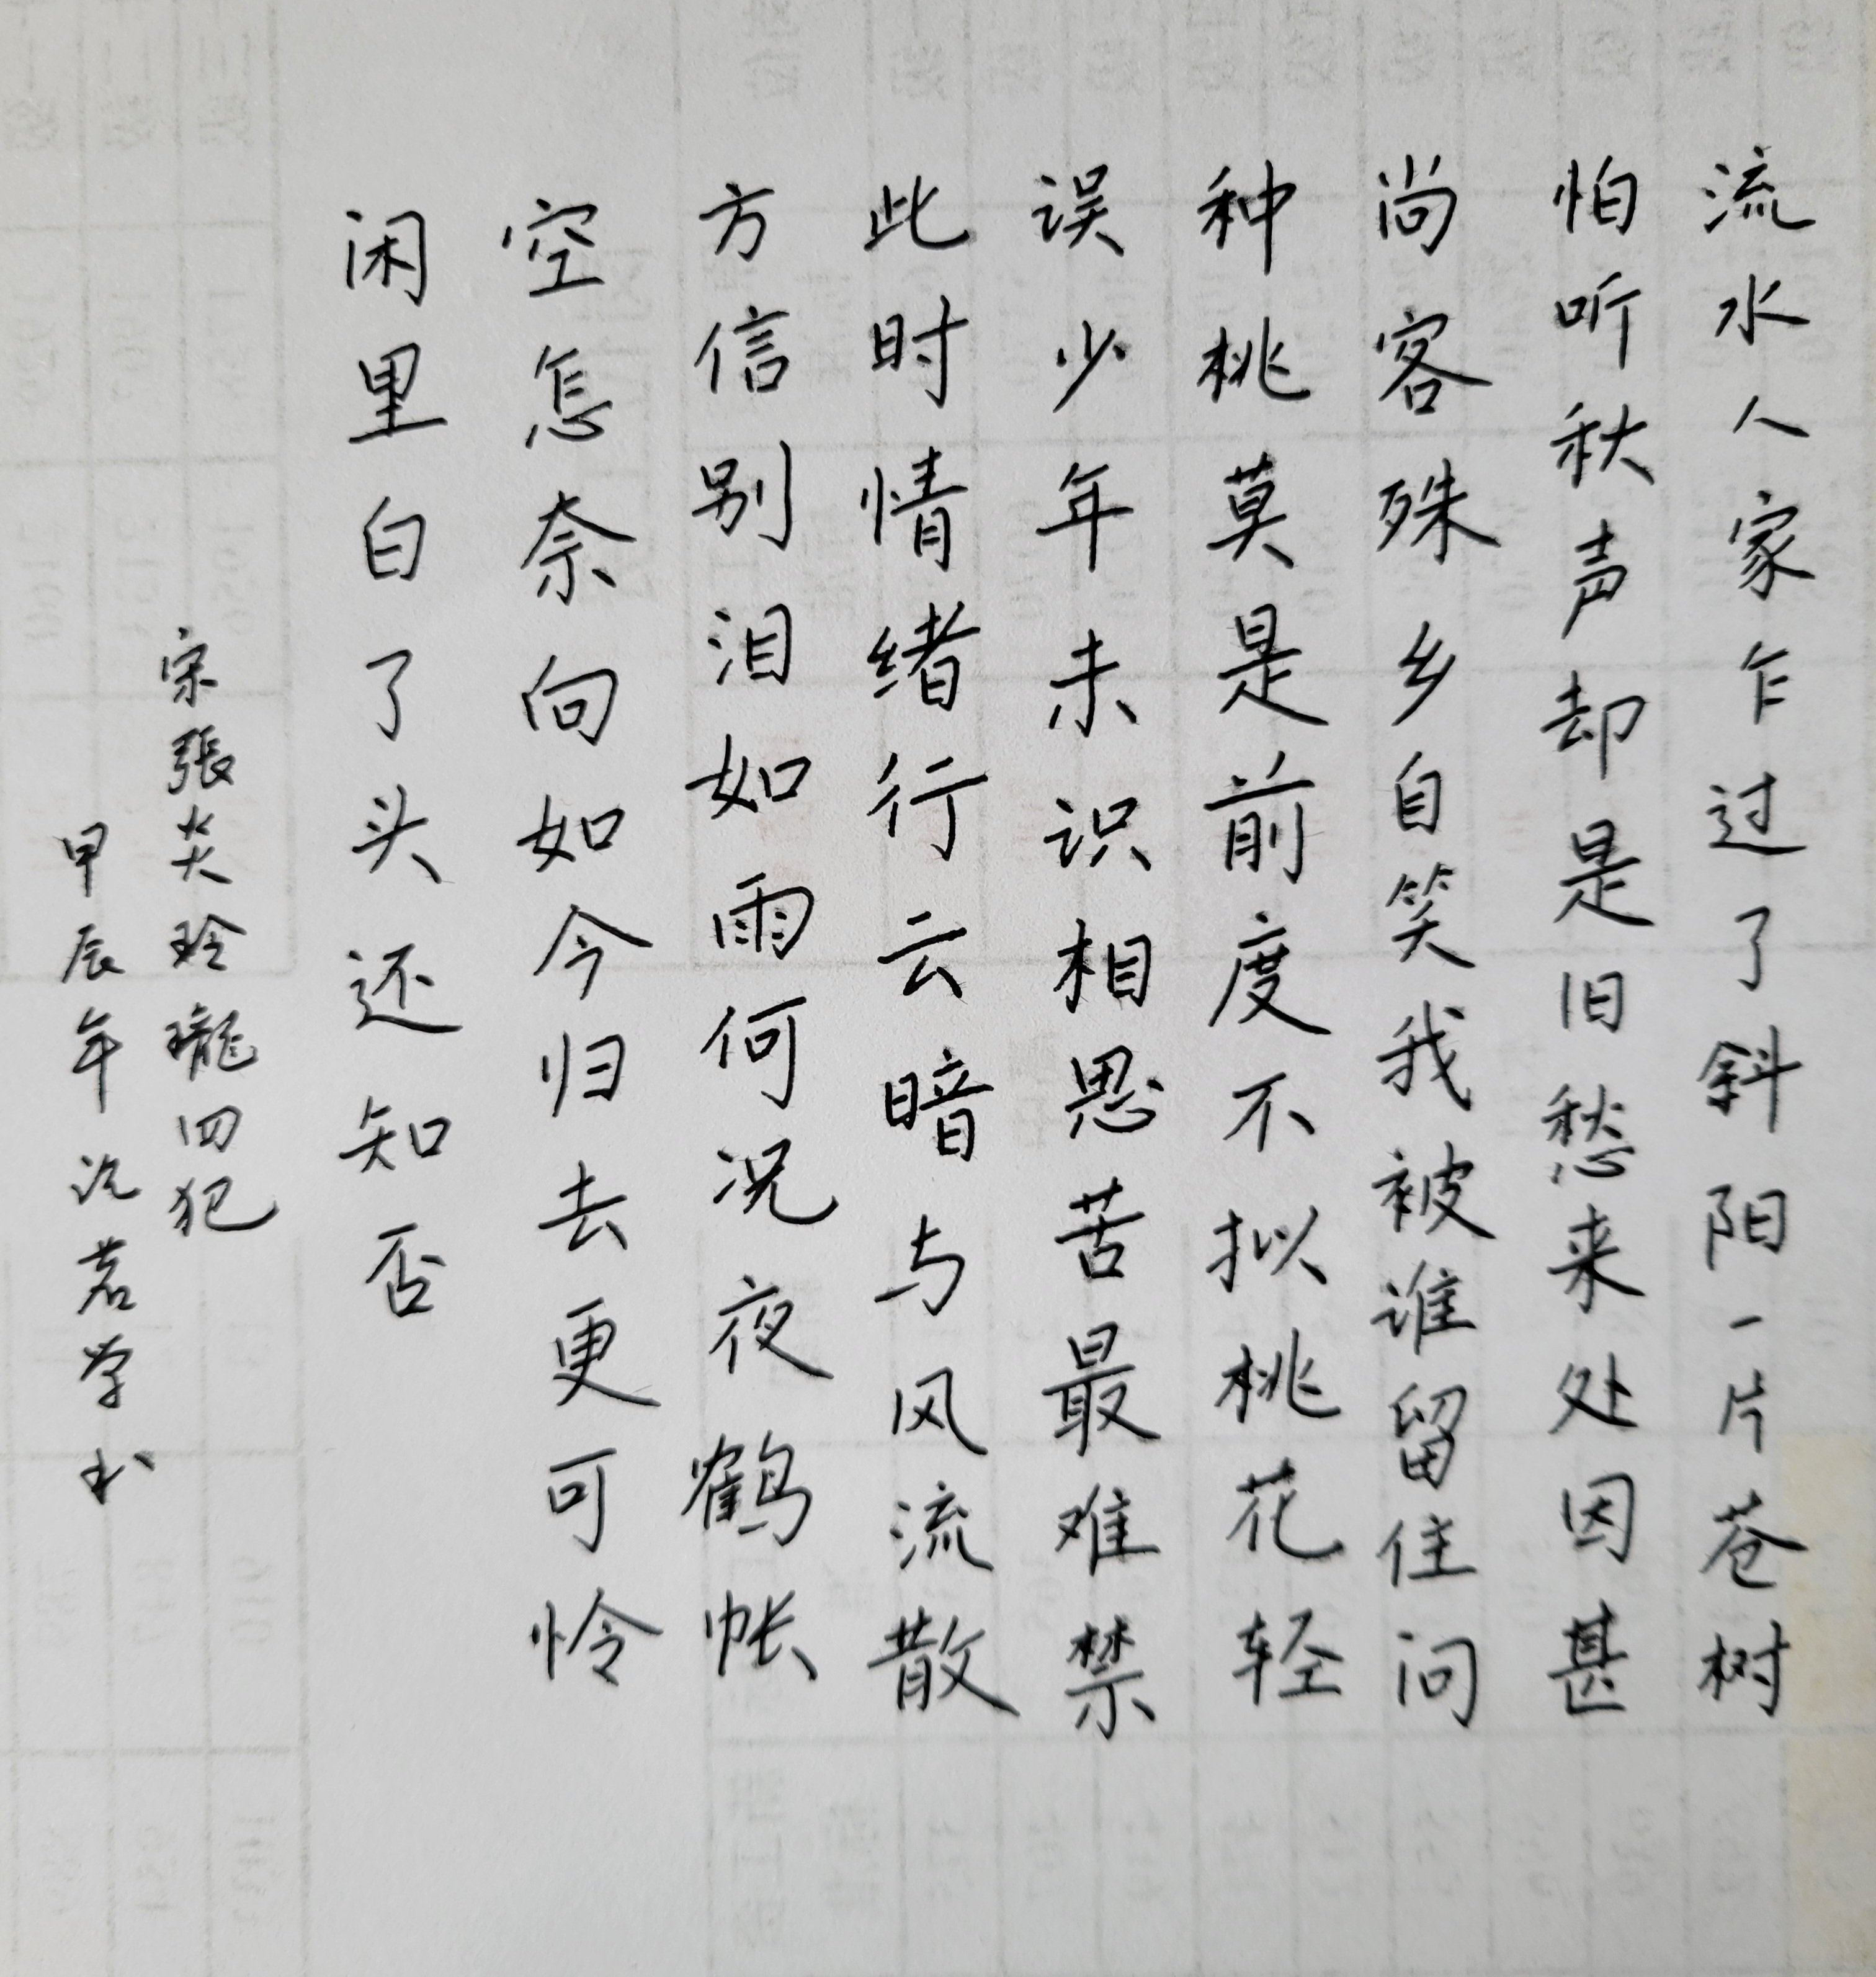 流水人家乍过了斜阳一片苍树
怕听秋声却是旧愁来处因甚
尚客殊乡自笑我被谁留住问
种桃莫是前度不拟桃花轻
误少年未识相思苦最难禁
此时情绪行云暗与风流散
方信别泪如雨何况夜鹤帐
空怎奈向如今归去更可怜
闲里白了头还知否
宋張炎玲瓏四犯
甲辰年沈茗学书